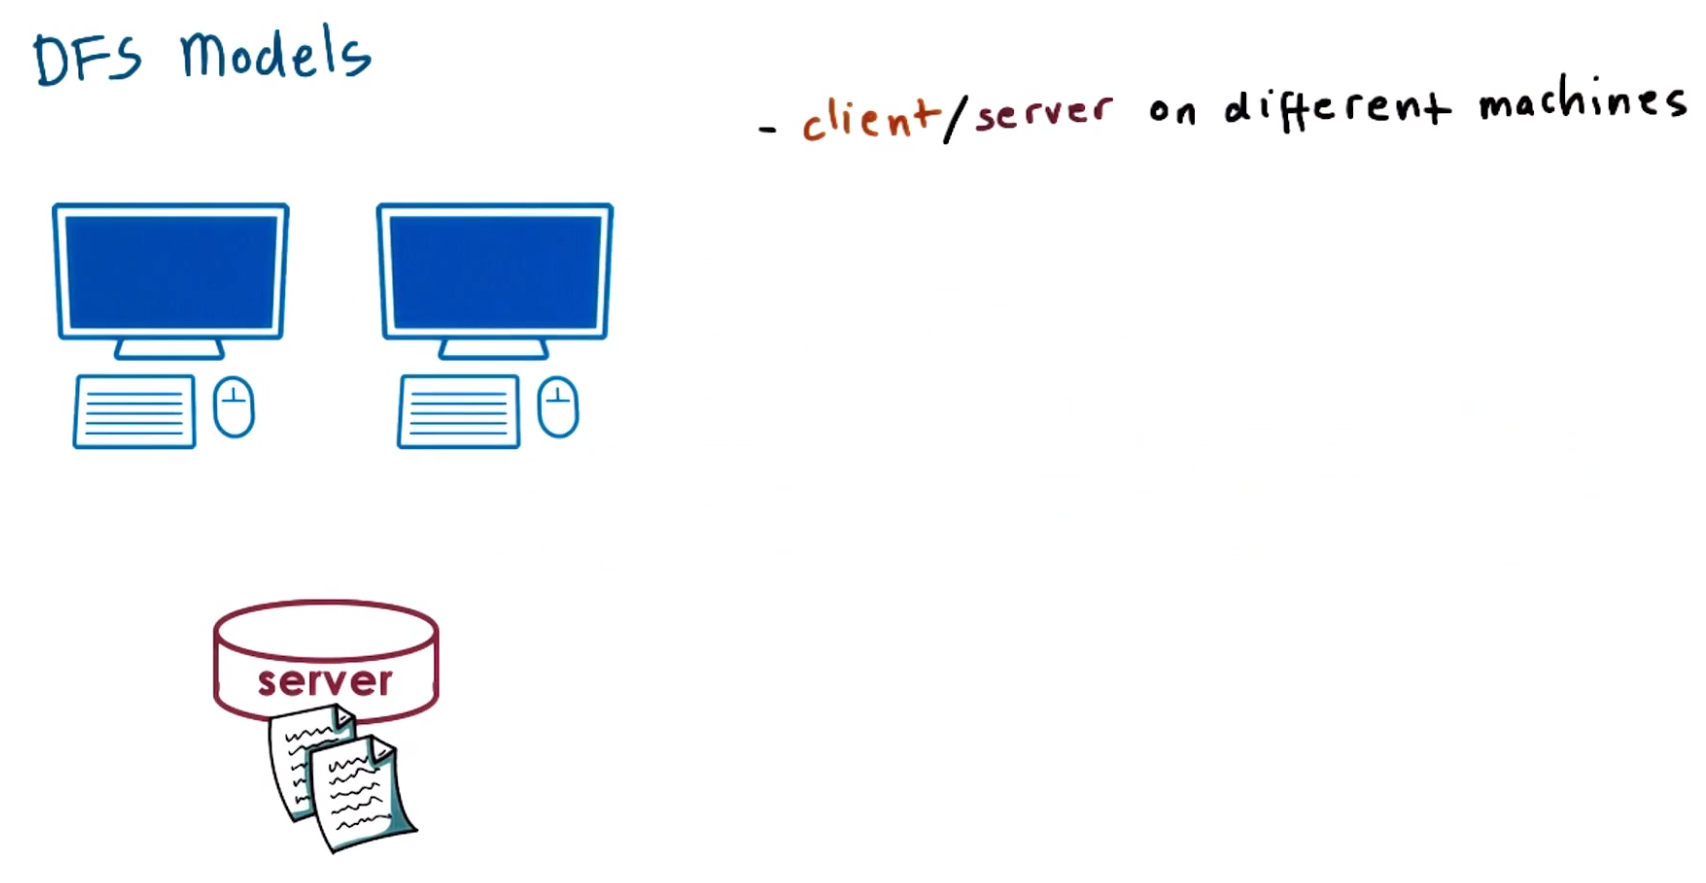 DFS Models
- client/server on different machines
server